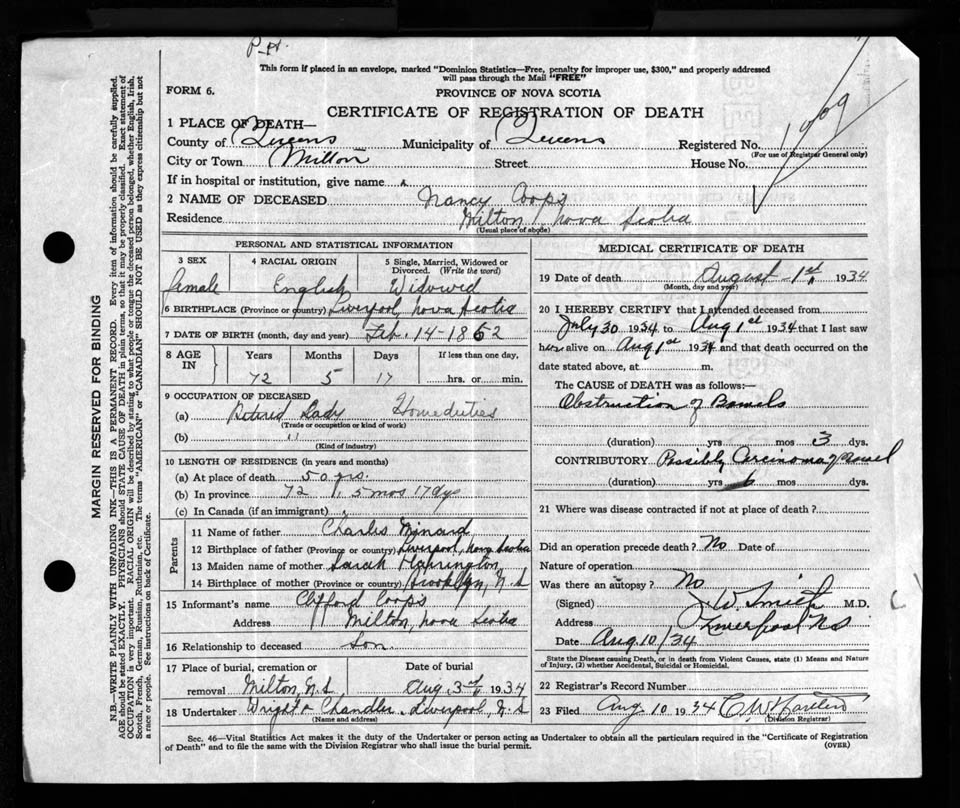 P.H.
This form if placed in an envelope, marked "Dominion Statistics—Free, penalty for improper use, $300," and properly addressed
will pass through the Mail "FREE"
FORM 6.
PROVINCE OF NOVA SCOTIA
CERTIFICATE OF REGISTRATION OF DEATH
1 PLACE OF DEATH—
County of Queens Municipality of Queens Registered No. 1909
(For use of Registrar General only)
City or Town Milton Street House No.
If in hospital or institution, give name
2 NAME OF DECEASED Nancy Coops
Residence Milton Nova Scotia
(Usual place of abode)
PERSONAL AND STATISTICAL INFORMATION
3 SEX 4 RACIAL ORIGIN 5 Single, Married, Widowed or
Divorced. (Write the word)
female English Widowed
6 BIRTHPLACE (Province or country) Liverpool, Nova Scotia
7 DATE OF BIRTH (month, day and year) Feb. 14-1862
8 AGE IN Years Months Days If less than one day.
72 5 17 hrs. or min.
9 OCCUPATION OF DECEASED
(a) Retired Lady Homeduties
(Trade or occupation or kind of work)
(b) "
(Kind of industry)
10 LENGTH OF RESIDENCE (in years and months)
(a) At place of death 50 yrs.
(b) In province 72 " 5 mos 17 dys
(c) In Canada (if an immigrant)
Parents
11 Name of father Charles Minard
12 Birthplace of father (Province or country) Liverpool, Nova Scotia
13 Maiden name of mother Sarah Harrington
14 Birthplace of mother (Province or country) Brooklyn, N.S
15 Informant's name Clifford Coops
Address Milton, Nova Scotia
16 Relationship to deceased Son.
17 Place of burial, cremation or Date of burial
removal Milton, N.S Aug. 3rd 1934
18 Undertaker Wright & Chandler. Liverpool, N.S
(Name and address)
MEDICAL CERTIFICATE OF DEATH
19 Date of death August - 1st 1934
(Month, day and year)
20 I HEREBY CERTIFY that I attended deceased from
July 30 1934 to Aug 1st 1934 that I last saw
her alive on Aug 1st 1934 and that death occurred on the
date stated above, at m.
The CAUSE of DEATH was as follows:—
Obstruction of Bowels
(duration) yrs mos 3 dys.
CONTRIBUTORY Possibly Carcinoma of bowel
(duration) yrs 6 mos dys.
21 Where was disease contracted if not at place of death?
Did an operation precede death? No Date of
Nature of operation
Was there an autopsy? No
(Signed) J.W. Smith M.D.
Address Liverpool NS
Date Aug 10/34
State the Disease causing Death, or in death from Violent Causes, state (1) Means and Nature
of Injury, (2) whether Accidental, Suicidal or Homicidal.
22 Registrar's Record Number
23 Filed Aug 10 1934 C.W.
(Division Registrar)
Sec. 46—Vital Statistics Act makes it the duty of the Undertaker or person acting as Undertaker to obtain all the particulars required in the "Certificate of Registration
of Death" and to file the same with the Division Registrar who shall issue the burial permit.
(OVER)
MARGIN RESERVED FOR BINDING
N.B.—WRITE PLAINLY WITH UNFADING INK—THIS IS A PERMANENT RECORD. Every item of information should be carefully supplied.
AGE should be stated EXACTLY. PHYSICIANS should STATE CAUSE OF DEATH in plain terms, so that it may be properly classified. Exact statement of
OCCUPATION is very important. RACIAL ORIGIN will be described by stating to what people or tongue the deceased person belonged, whether English, Irish,
Scotch, French, German, Russian, Ruthenian, etc. The terms "AMERICAN" or "CANADIAN" SHOULD NOT BE USED as they express citizenship but not
a race or people. See instructions on back of Certificate.